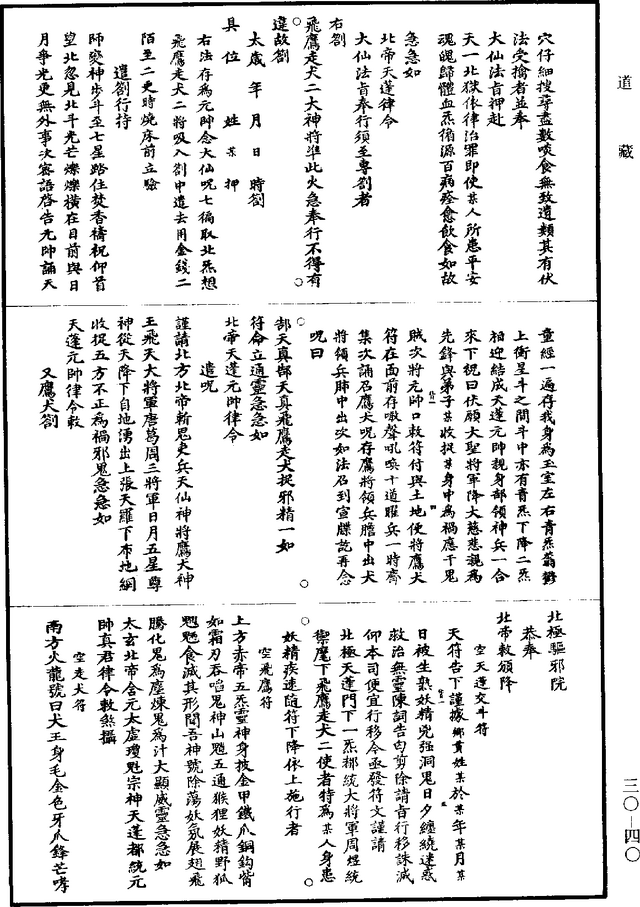 道藏
穴仔細搜尋盡數啖食無致遺類其有伏
法受擒者並奉
大仙法旨押赴
天一北獄依律治罪即使某人所患平安
魂魄歸體血炁循源百病痊愈飲食如故
急急如
北帝天蓬律令
大仙法旨奉行須至專劄者
右劄
飛鷹走犬二大神將準此火急奉行不得有
違故劄
太歲年月日時劄
具位姓某押
右法存為元帥念大仙呪七徧取北炁想
飛鷹走犬二將吸入劄中遣去用金錢二
陌至二更時燒床前立驗
遣劄行持
師變神步斗至七星路住焚香禱祝仰首
望北忽見北斗光芒燦爍橫在目前與日
月爭光更無外事次密語啓告元帥誦天
童經一遍存我身為玉室左右青炁蓊鬱
上衝星斗之間斗中亦有青炁下降二炁
相迎結成天蓬元帥親身部領神兵一合
來下祝曰伏願大聖將軍降大慈悲親為
先鋒與弟子某收捉某身中為禍應干鬼
賊次將元帥口敕符付與土地便將鷹犬
符在面前存嗷聲吼喚十道猩兵一時齊
集次誦召鷹犬呪存鷹將領兵膽中出犬
將領兵肺中出次如法召到宣牒訖再念
呪曰
部天真部天真飛鷹走犬捉邪精一如
符命立通靈急急如
北帝天蓬元帥律令
遣呪
謹請北方北帝斬鬼吏兵天仙神將鷹犬神
王飛天大將軍唐葛周三將軍日月五星尊
神從天降下自地湧出上張天羅下布地網
收捉五方不正為禍邪鬼急急如
天蓬元帥律令敕
又鷹犬劄
北極驅邪院
恭奉
北帝敕頒降
空天蓬交斗符
天符告下謹據鄉貫姓某於某年某月某
日被生熟妖精兇強洞鬼日夕纏繞迷惑
救治無靈陳詞告白剪除請旨行移誅滅
仰本司便宜行移今亟發符文謹請
北極天蓬門下一炁都統大將軍周煜統
禦麾下飛鷹走犬二使者特為某人身患
妖精疾速隨符下降依上施行者
空飛鷹符
上方赤帝五炁靈神身披金甲鐵爪銅鈎觜
如霜刃吞啗鬼神山魈五通猴狸妖精野狐
魍魎食滅其形聞吾神號除蕩妖氛展翅飛
騰化鬼為塵煉鬼為汁大顯威靈急急如
太玄北帝含元太虛瓊魁宗神天蓬都統元
帥真君律令敕煞攝
空走犬符
南方火龍號曰犬王身毛金色牙爪鋒芒哮
三〇—四〇